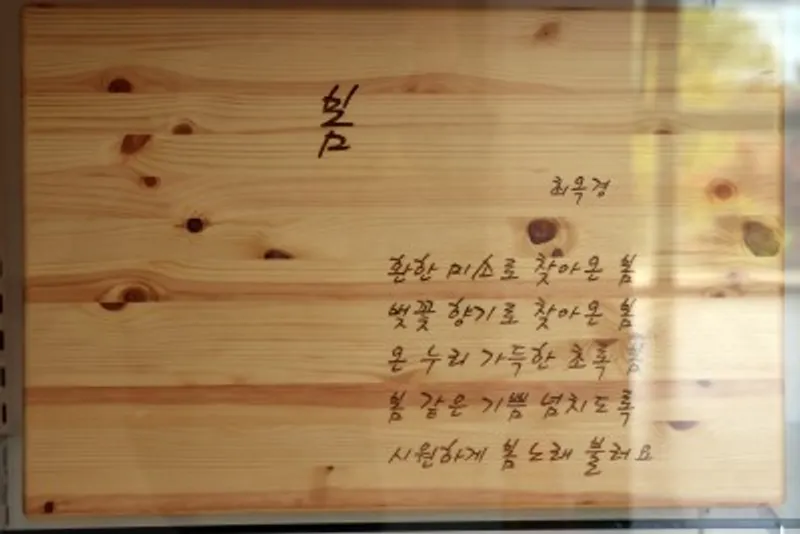 봄
최옥경
환한 미소로 찾아온 봄
벚꽃 향기로 찾아온 봄
온 누리 가득한 초록
봄 같은 기쁨 넘치도록
시원하게 봄노래 불러요